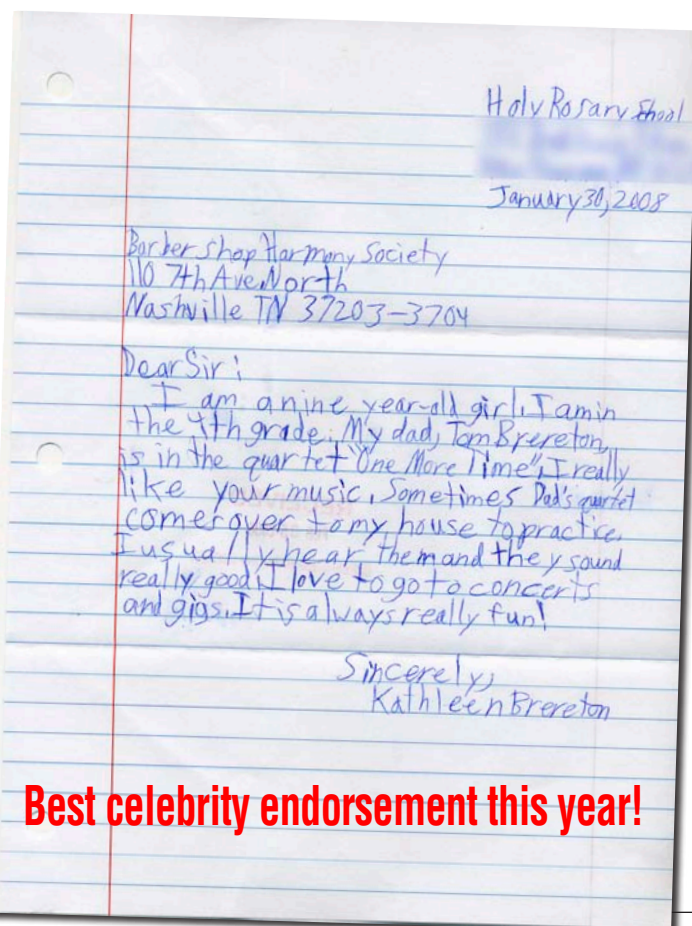 Holy Rosary School
January 30, 2008
Barbershop Harmony Society
110 7th Ave North
Nashville TN 37203-3704
Dear Sir:
I am a nine year-old girl. I am in
the 4th grade. My dad, Tom Brereton,
is in the quartet "One More Time". I really
like your music. Sometimes Dad's quartet
comes over to my house to practice.
I usually hear them and they sound
really good. I love to go to concerts
and gigs. It is always really fun!
Sincerely,
Kathleen Brereton
Best celebrity endorsement this year!